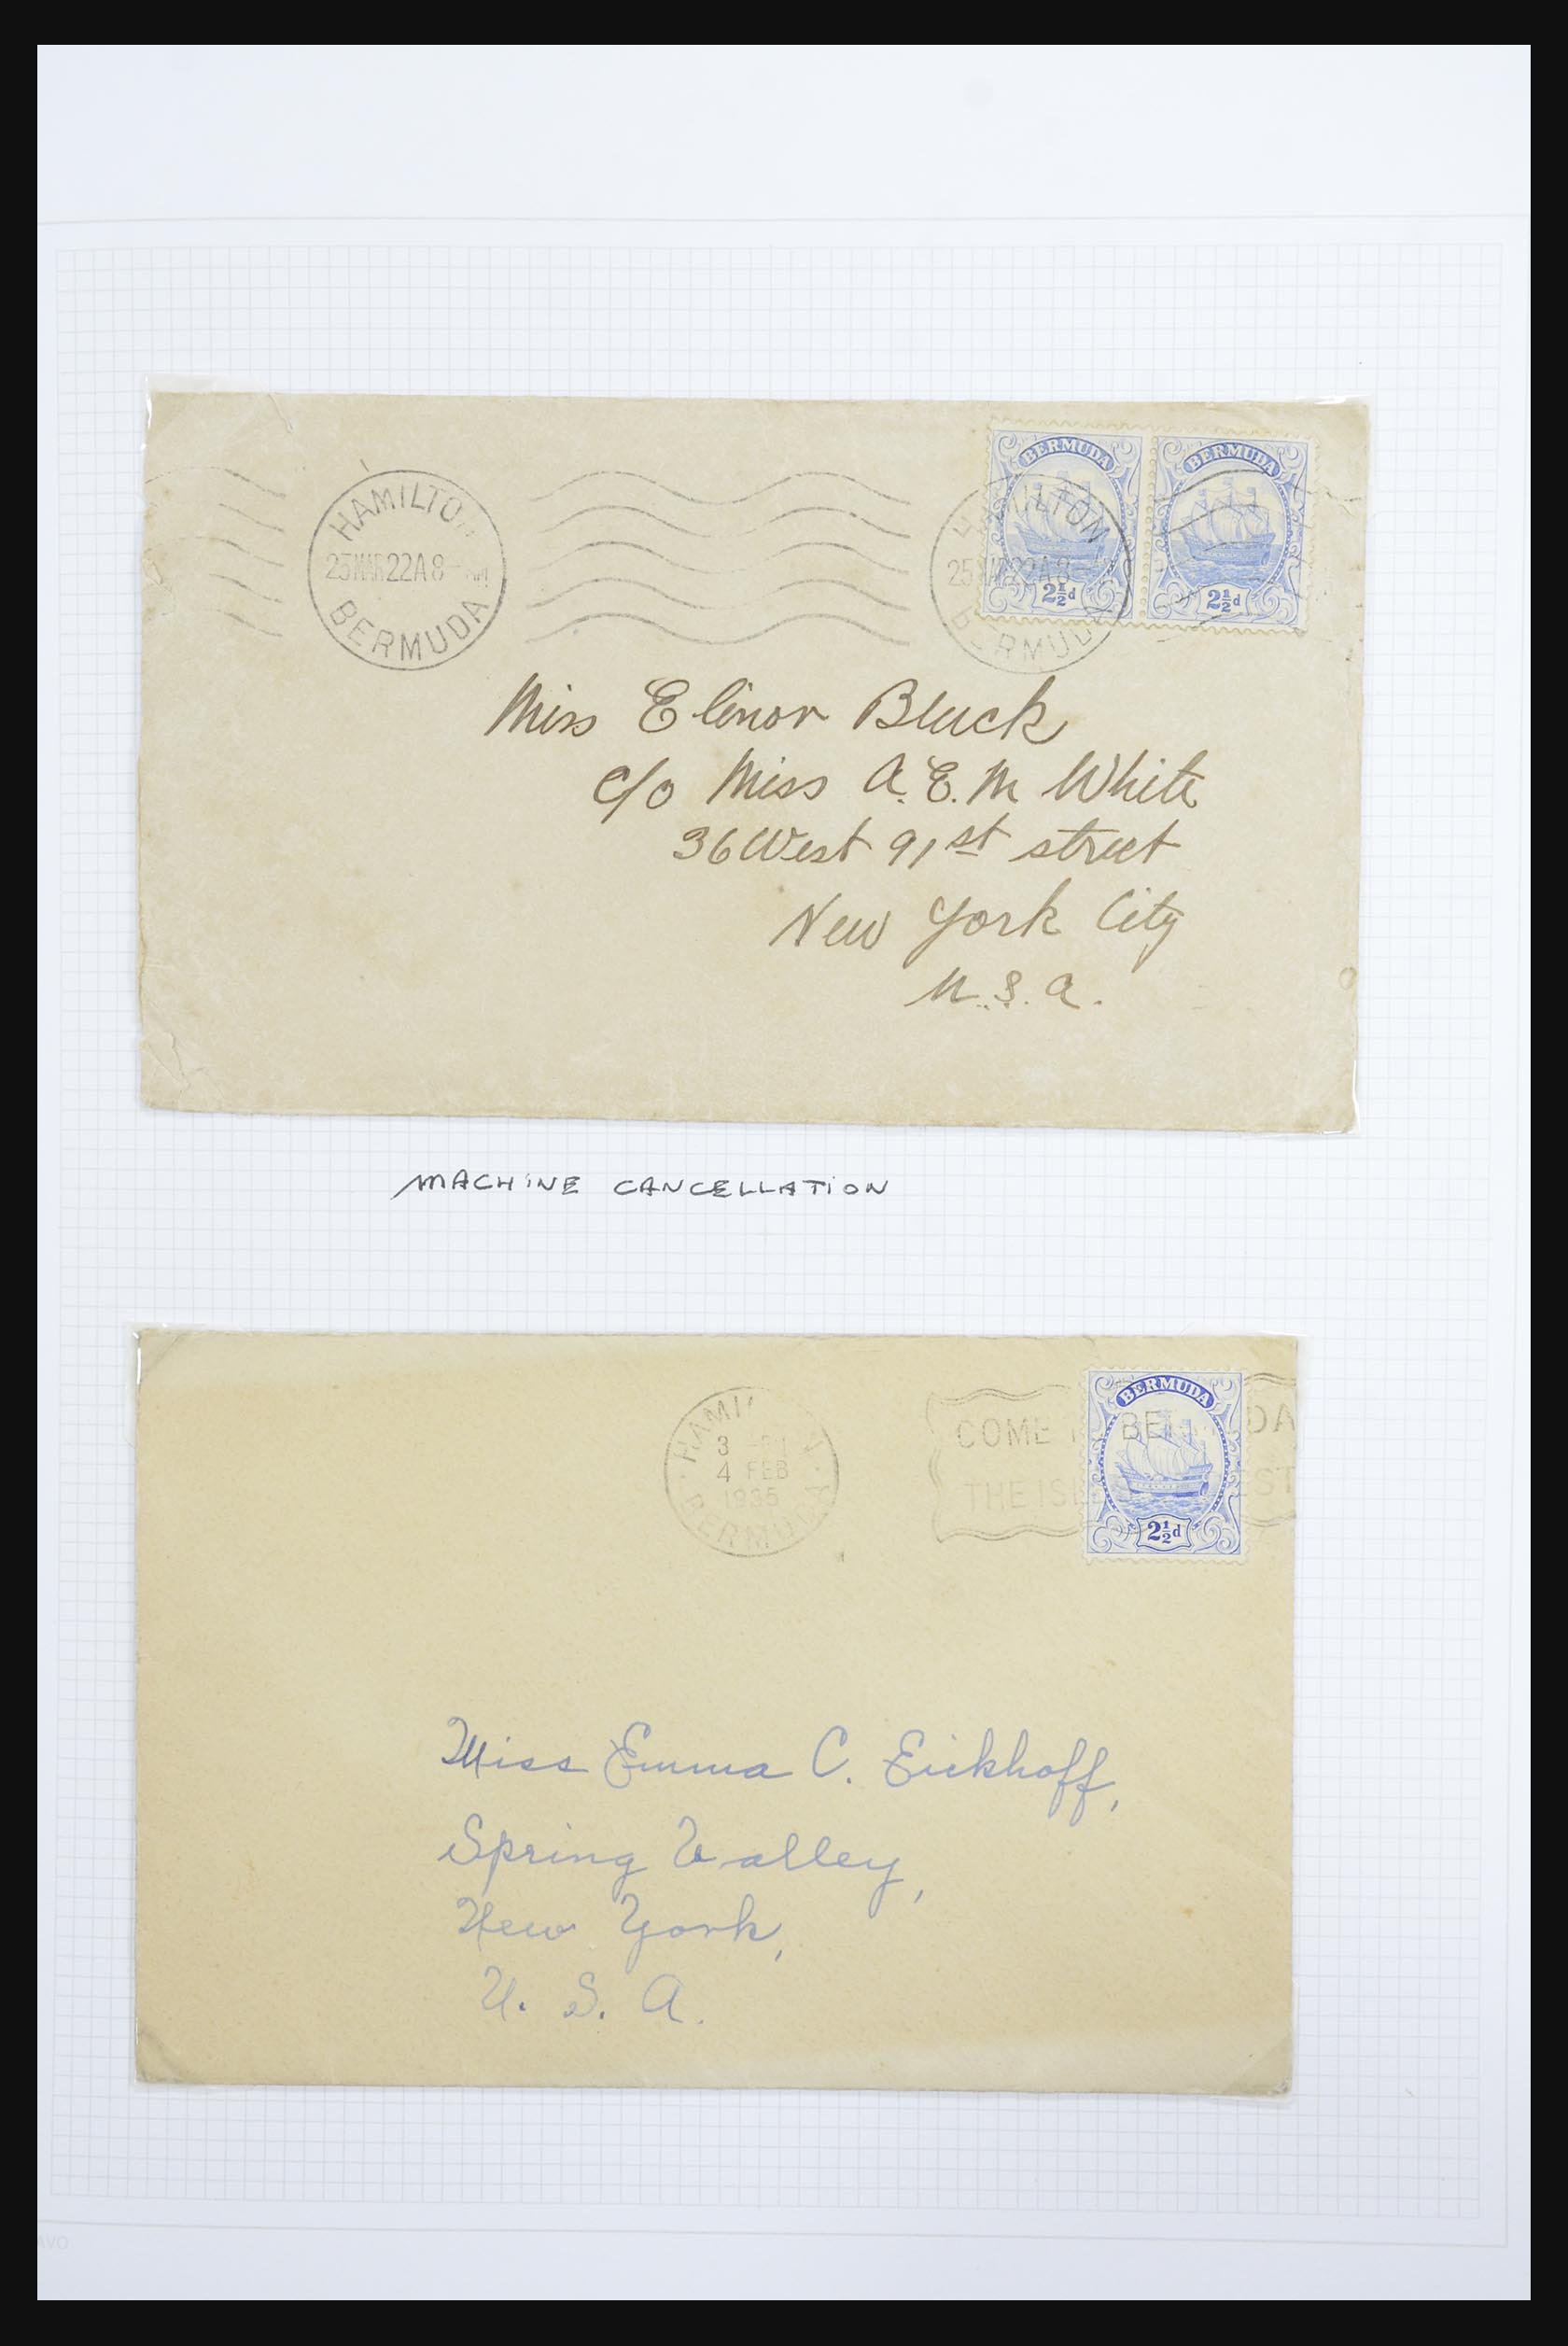 BERMUDA BERMUDA
HAMILTON
25 MAR 22 A 8 -
BERMUDA
HAMILTON
25 MAR 22 A 8 -
BERMUDA
2½d 2½d
Miss Elinor Bluck
c/o Miss A. E. M White
36 West 91st street
New York City
U. S. A.
MACHINE CANCELLATION
BERMUDA
HAMI
3 PM
4 FEB
1935
BERMUDA
COME BERMUDA
THE ISL
2½d
Miss Emma C. Eickhoff,
Spring Valley,
New York,
U. S. A.